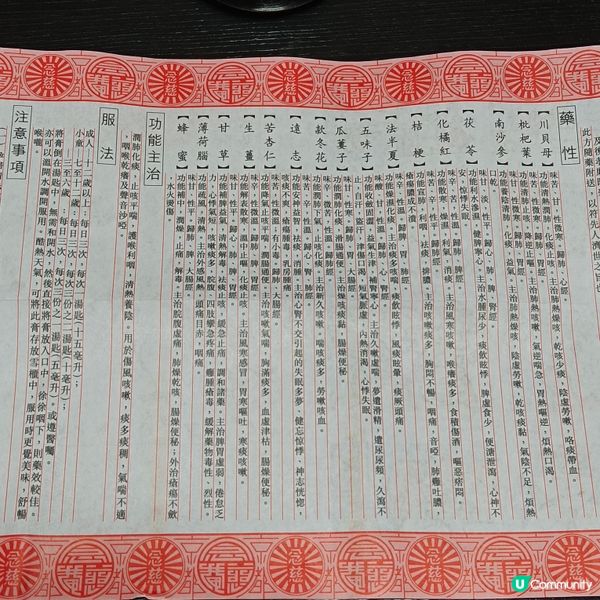 此方隨藥附送，以符先人濟世之旨也
藥性
【川貝母】味苦、甘，性微寒。歸肺、心經。
功能清熱潤肺，化痰止咳。主治肺熱燥咳，乾咳少痰，陰虛勞嗽，咯痰帶血。
【枇杷葉】味苦，性微寒。歸肺、胃經。
功能清肺止咳，降逆止嘔。主治肺熱咳嗽，氣逆喘急，胃熱嘔逆，煩熱口渴。
【南沙參】味甘，性微寒。歸肺、胃經。
功能養陰清肺，化痰，益氣。主治肺熱燥咳，陰虛勞嗽，乾咳痰黏，氣陰不足，煩熱
口乾。
【茯苓】味甘、淡，性平。歸心、肺、脾、腎經。
功能利水滲濕，健脾寧心。主治水腫尿少，痰飲眩悸，脾虛食少，便溏泄瀉，心神不
安，驚悸失眠。
【化橘紅】味辛、苦，性溫。歸肺、脾經。
功能散寒，燥濕，利氣，消痰。主治風寒咳嗽，喉癢痰多，食積傷酒，嘔惡痞悶。
【桔梗】味苦、辛，性平。歸肺經。
功能宣肺，利咽，祛痰，排膿。主治咳嗽痰多，胸悶不暢，咽痛，音啞，肺癰吐膿，
瘡瘍膿成不潰。
【法半夏】味辛，性溫。歸脾、胃、肺經。
功能燥濕化痰。主治痰多咳喘，痰飲眩悸，風痰眩暈，痰厥頭痛。
【五味子】味酸、甘，性溫。歸肺、心、腎經。
功能收斂固澀，益氣生津，補腎寧心。主治久嗽虛喘，夢遺滑精，遺尿尿頻，久瀉不
止，自汗，盜汗，津傷口渴，短氣脈虛，內熱消渴，心悸失眠。
【瓜蔞子】味甘，性寒。歸肺、胃、大腸經。
功能潤肺化痰，滑腸通便。主治燥咳痰黏，腸燥便秘。
【款冬花】味辛、微苦，性溫。歸肺經。
功能潤肺下氣，止咳化痰。主治新久咳嗽，喘咳痰多，勞嗽咳血。
【遠志】味苦、辛，性溫。歸心、腎、肺經。
功能安神益智，祛痰，消腫。主治心腎不交引起的失眠多夢，健忘驚悸，神志恍惚，
咳痰不爽，瘡瘍腫毒，乳房腫痛。
【苦杏仁】味苦，性微溫；有小毒。歸肺、大腸經。
功能降氣止咳平喘，潤腸通便。主治咳嗽氣喘，胸滿痰多，血虛津枯，腸燥便秘。
【生薑】味辛，性微溫。歸肺、脾、胃經。
功能解表散寒，溫中止嘔，化痰止咳。主治風寒感冒，胃寒嘔吐，寒痰咳嗽。
【甘草】味甘，性平。歸心、肺、脾、胃經。
功能補脾益氣，清熱解毒，祛痰止咳，緩急止痛，調和諸藥。主治脾胃虛弱，倦怠乏
力，心悸氣短，咳嗽痰多，脘腹、四肢攣急疼痛，癰腫瘡毒，緩解藥物毒性、烈性。
【薄荷腦】
功能疏風，清熱。主治外感風熱，頭痛目赤，咽痛。
【蜂蜜】味甘，性平。歸肺、脾、大腸經。
功能補中，潤燥，止痛，解毒。主治脘腹虛痛，肺燥乾咳，腸燥便秘；外治瘡瘍不斂
，水火燙傷。
功能主治
潤肺化痰，止咳平喘，護喉利咽，清熱養陰。用於傷風咳嗽，痰多痰稠，氣喘不適
，咽喉乾癢及聲音沙啞。
服法
成人、十二歲以上：每日三次，每次一湯匙(十五毫升)；
小童：七至十二歲：每日三次，每次三份之二湯匙(十毫升)；
一至六歲：每日三次，每次三份之一湯匙(五毫升)或遵醫囑。
將膏倒在湯匙中，無需和開水，然後直接將膏放入口中，徐徐咽下，則藥效較佳。
亦可以溫開水調開服用。酷熱天氣，可將此膏存放雪櫃中，服用時更覺美味，舒暢
喉嚨。
注意事項
念慈
U Community